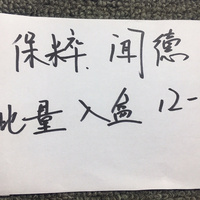 保粹、闻德
比量入盒12-